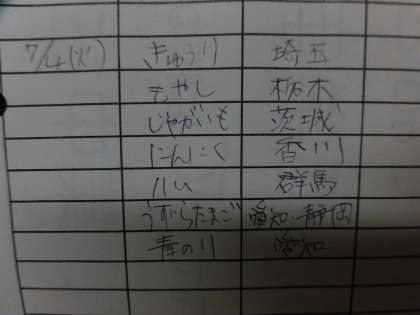 7/4(火) きゅうり 埼玉
もやし 栃木
じゃがいも 茨城
にんにく 香川
群馬
うずらたまご 愛知・静岡
青のり 愛知